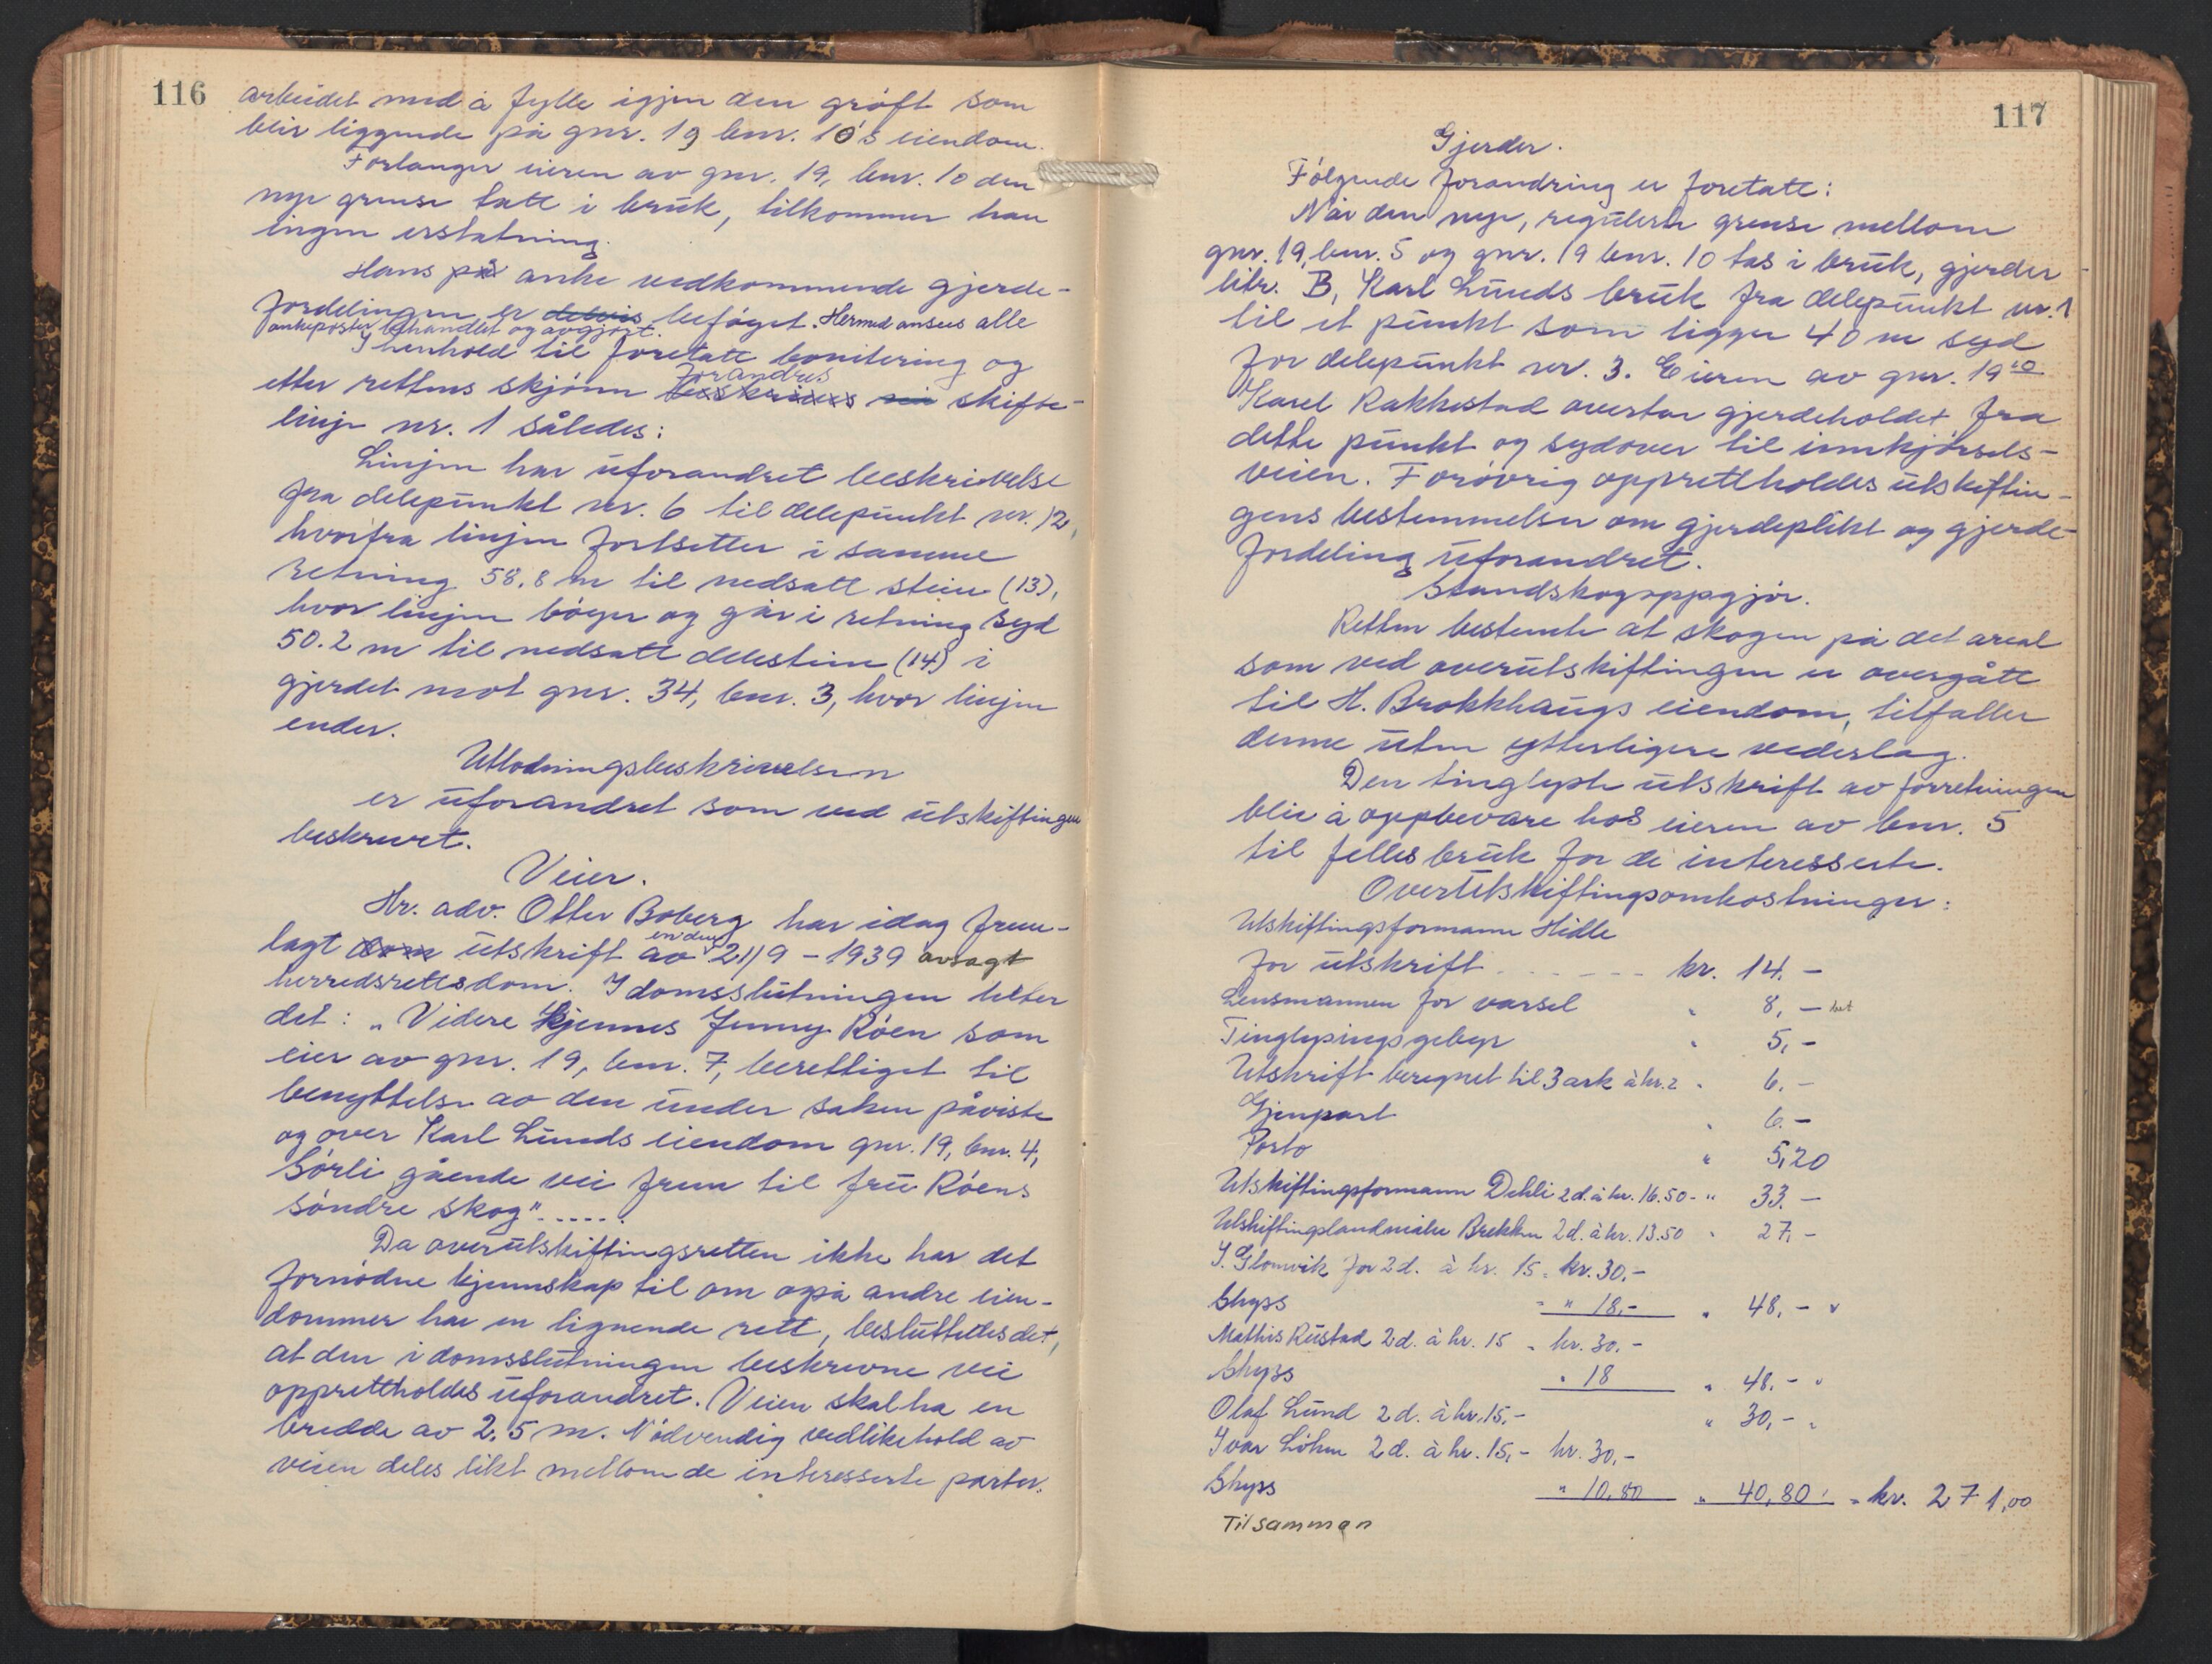 116
arbeidet med å fylle igjen den grøft som
blir liggende på gnr. 19 bnr. 10's eiendom.
Forlanger eieren av gnr. 19, bnr. 10 den
nye grense tatt i bruk, tilkommer han
ingen erstatning.
Hans på anke vedkommende gjerde-
fordelingen er delvis beføyet. Hermed ansees alle
ankeposter behandlet og avgjort.
I henhold til foretatt bonitering og
forandres
etter rettens skjønn beskrives skifte-
linje nr. 1 således:
Linjen har uforandret beskrivelse
fra delepunkt nr. 6 til delepunkt nr. 12,
hvorfra linjen fortsetter i samme
retning 58.8 m til nedsatt stein (13),
hvor linjen bøyer og går i retning syd
50.2 m til nedsatt delestein (14) i
gjerdet mot gnr. 34, bnr. 3, hvor linjen
ender.
Utlodningsbeskrivelsen
er uforandret som ved utskiftingen
beskrevet.
Veier.
Hr. adv. Otter Boberg har idag frem-
en den
lagt dom utskrift av 21/9 - 1939 avsagt
herredsrettsdom. I domsslutningen heter
det: „Videre kjennes Jenny Røen som
eier av gnr. 19, bnr. 7, berettiget til
benyttelse av den under saken påviste
og over Karl Lunds eiendom gnr. 19, bnr. 4,
Sørli gående vei frem til fru Røens
søndre skog".....
Da overutskiftingsretten ikke har det
fornødne kjennskap til om også andre eien-
dommer har en lignende rett, besluttedes det,
at den i domsslutningen beskrevne vei
opprettholdes uforandret. Veien skal ha en
bredde av 2.5 m. Nødvendig vedlikehold av
veien deles likt mellom de interesserte parter.
117
Gjerder.
Følgende forandring er foretatt:
Når den nye, regulerte grense mellom
gnr. 19, bnr. 5 og gnr. 19 bnr. 10 tas i bruk, gjerder
litr. B, Karl Lunds bruk fra delepunkt nr. 1
til et punkt som ligger 40 m syd
for delepunkt nr. 3. Eieren av gnr. 19 10
Karel Rakkestad overtar gjerdeholdet fra
dette punkt og sydover til innkjørsels-
veien. Forøvrig opprettholdes utskiftin-
gens bestemmelser om gjerdeplikt og gjerde-
fordeling uforandret.
Standskogoppgjør.
Retten bestemte at skogen på det areal
som ved overutskiftingen er overgått
til H. Brokkhaugs eiendom, tilfaller
denne uten ytterligere vederlag.
Den tinglyste utskrift av forretningen
blir å oppbevare hos eieren av bnr. 5
til felles bruk for de interesserte.
Overutskiftingsomkostninger:
Utskiftingsformann Hidle
for utskrift . - - - - - kr. 14.-
Lensmannen for varsel " 8,-
Tinglysingsgebyr " 5,-
Utskrift beregnet til 3 ark à kr. 2 " 6.-
Gjenpart " 6.-
Porto " 5,20
Utskiftingsformann Dehli 2 d. à kr. 16.50 - " 33.-
Utskiftingslandmåler Brekken 2 d. à kr. 13.50 " 27,-
J. Glomvik for 2 d. à kr. 15 = kr. 30.-
Skyss = " 18,- " 48,-
Mathis Rustad 2 d. à kr. 15 = kr. 30.-
Skyss " 18 " 48.-
Olaf Lund 2 d. à kr. 15.- " 30,-
Ivar Løken 2 d. à kr. 15,- kr. 30,-
Skyss " 10,80 " 40,80 = kr. 271,00
Tilsammen